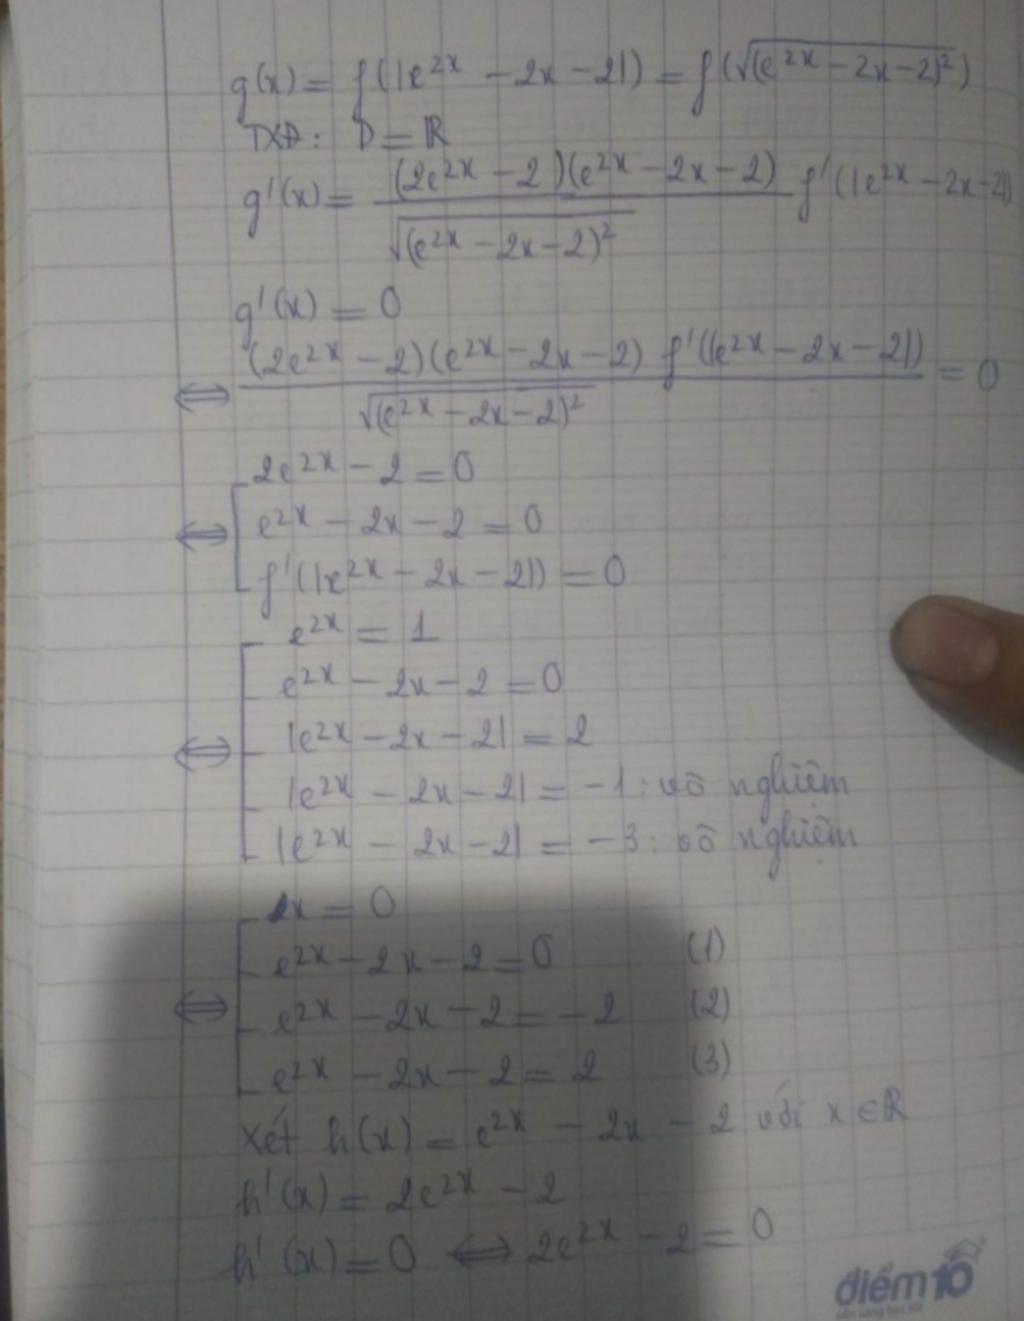 g(x) = f(|e^{2x} - 2x - 2|) = f(√((e^{2x} - 2x - 2)²))
TXĐ: D = ℝ
g'(x) = (2e^{2x} - 2)(e^{2x} - 2x - 2) / √((e^{2x} - 2x - 2)²) f'(|e^{2x} - 2x - 2|)
g'(x) = 0
⇔ (2e^{2x} - 2)(e^{2x} - 2x - 2) f'(|e^{2x} - 2x - 2|) / √((e^{2x} - 2x - 2)²) = 0
2e^{2x} - 2 = 0
⇔ [ e^{2x} - 2x - 2 = 0
f'(|x^{2x} - 2x - 2|) = 0
e^{2x} = 1
e^{2x} - 2x - 2 = 0
⇔ [ |e^{2x} - 2x - 2| = 2
|e^{2x} - 2x - 2| = -1 : vô nghiệm
|e^{2x} - 2x - 2| = -3 : vô nghiệm
x = 0
e^{2x} - 2x - 2 = 0 (1)
⇔ [ e^{2x} - 2x - 2 = -2 (2)
e^{2x} - 2x - 2 = 2 (3)
Xét h(x) = e^{2x} - 2x - 2 với x ∈ ℝ
h'(x) = 2e^{2x} - 2
h'(x) = 0 ⇔ 2e^{2x} - 2 = 0
điểm10